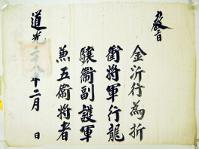 敎旨
金沂行爲折
衝將軍行龍
驤衛副護軍
兼五衛將者
道光二十八年十二月 日